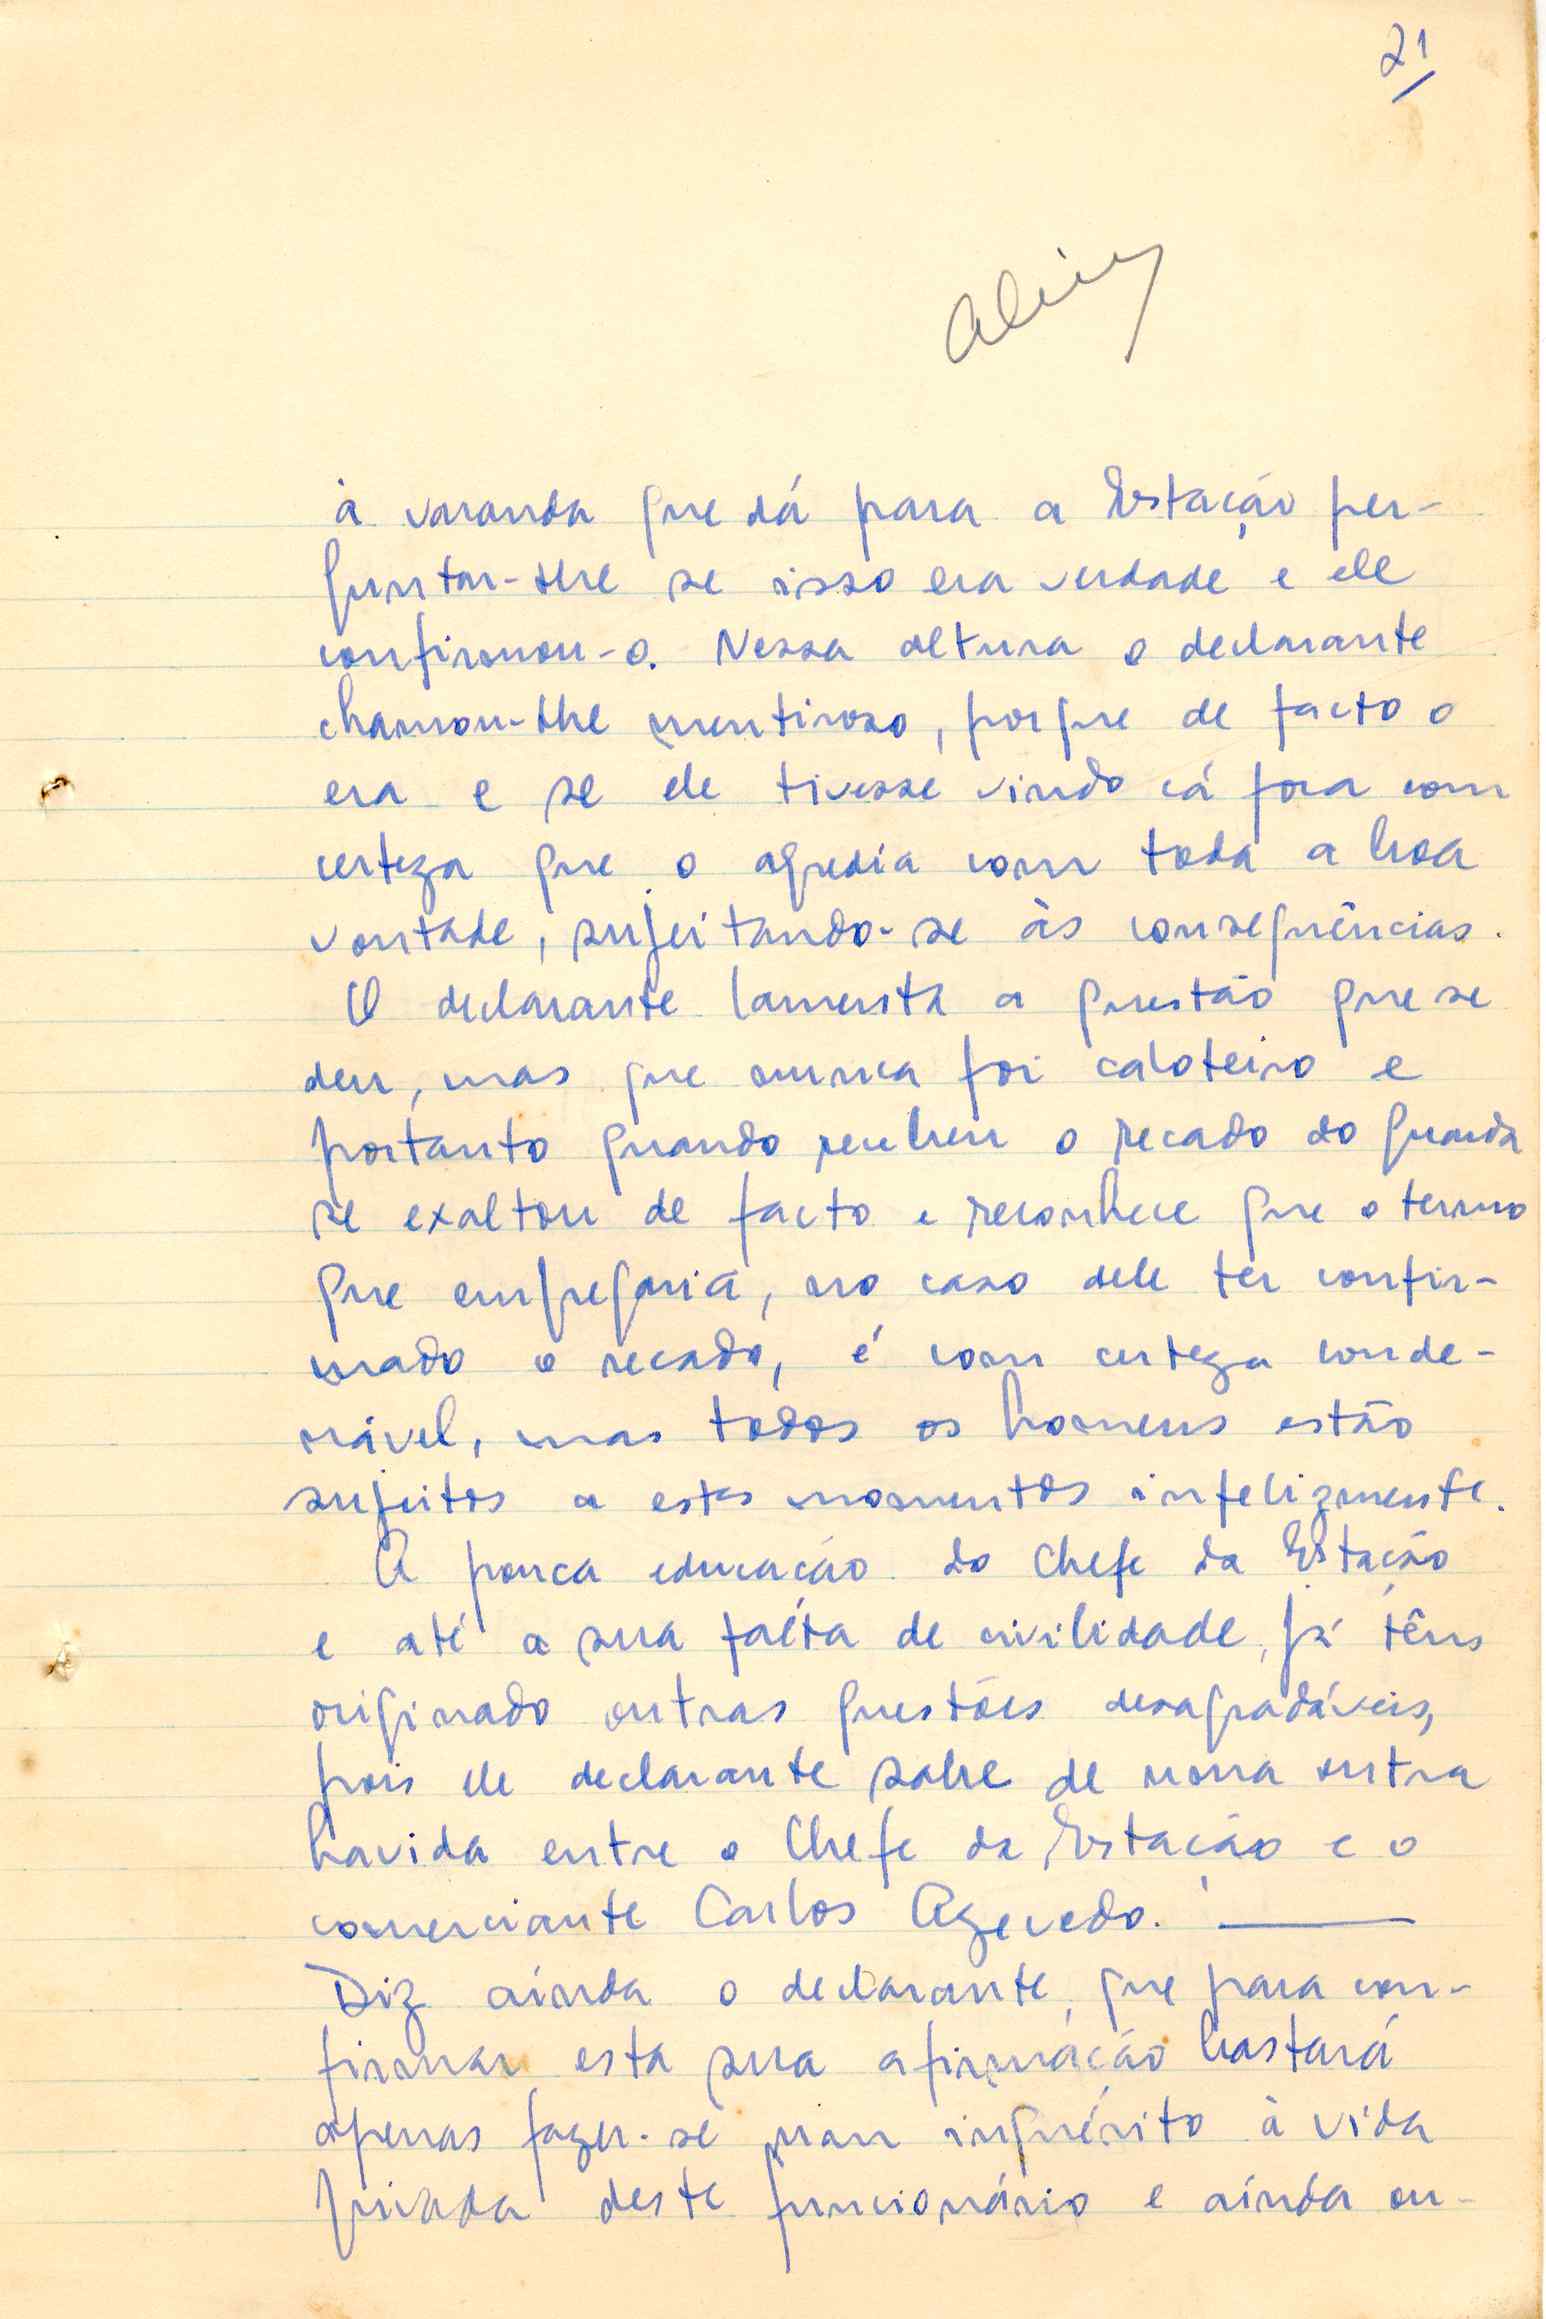 21
à varanda que dá para a Estação per-
guntar-lhe se isso era verdade e ele
confirmou-o. Nessa altura o declarante
chamou-lhe mentiroso, porque de facto o
era e se ele tivesse vindo cá fora com
certeza que o agredia com toda a boa
vontade, sujeitando-se às consequências.
O declarante lamenta a questão que se
deu, mas que nunca foi caloteiro e
portanto quando recebeu o recado do guarda
se exaltou de facto e reconhece que o termo
que empregaria, no caso dele ter confir-
mado o recado, é com certeza conde-
nável, mas todos os homens estão
sujeitos a estes momentos infelizmente.
A pouca educação do Chefe da Estação
e até a sua falta de civilidade, já têns
originado outras questões desagradáveis,
pois ele declarante sabe de numa outra
havida entre o Chefe da Estação e o
comerciante Carlos Azevedo.
Diz ainda o declarante, que para con-
firmar esta sua afirmáção bastará
apenas fazer-se num inquérito à vida
privada deste funcionário e ainda ou-